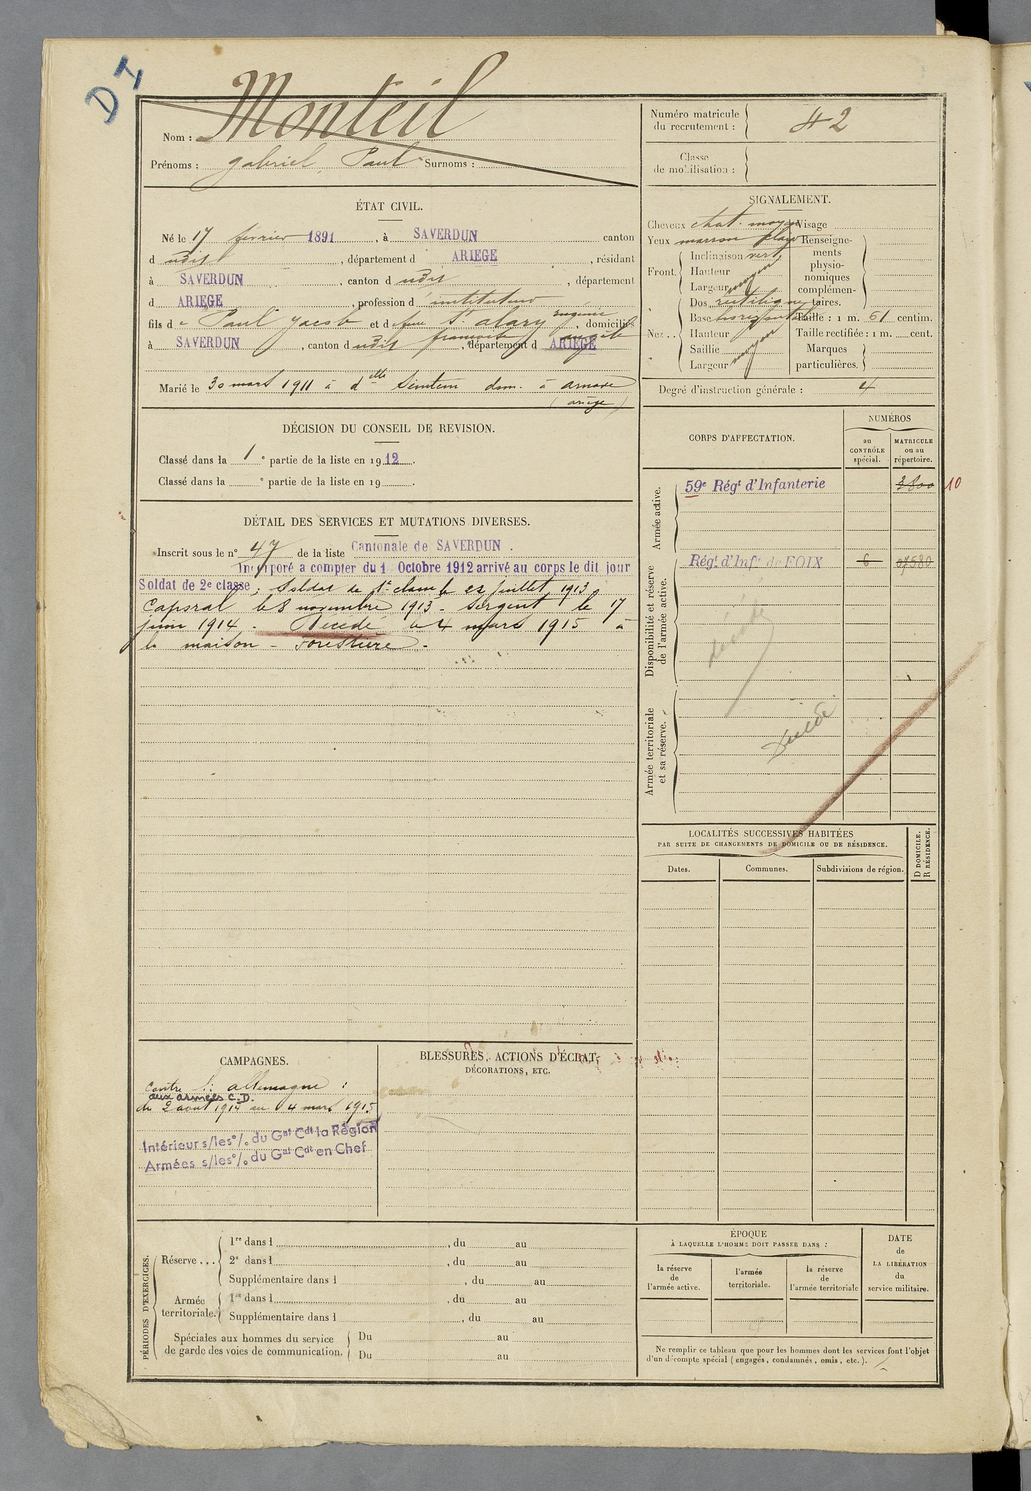 D I
Nom : Monteil
Prénoms : Gabriel, Paul Surnoms :
Numéro matricule du recrutement : 42
Classe de mobilisation :
ÉTAT CIVIL.
Né le 17 février 1891, à SAVERDUN canton
d udit, département d ARIEGE, résidant
à SAVERDUN, canton d udit, département
d ARIEGE, profession d instituteur
fils de Paul Jacob et de feue St alary eugénie, domiciliés
à SAVERDUN, canton d udit françoise angèle, département d ARIEGE
Marié le 30 mars 1911 à delle Sémtein dom. à arnave
(ariège)
SIGNALEMENT.
Cheveux chat. moyen
Yeux marron
Front. Inclinaison vert.
Hauteur
Largeur moyen
Nez.. Dos rectiligne
Base
Hauteur
Saillie
Largeur moyen
Visage
Renseignements physionomiques complémentaires.
Taille : 1 m. 61 centim.
Taille rectifiée : 1 m. cent.
Marques particulières.
Degré d'instruction générale : 4
DÉCISION DU CONSEIL DE REVISION.
Classé dans la 1e partie de la liste en 1912.
Classé dans la e partie de la liste en 19 .
CORPS D'AFFECTATION.
NUMÉROS
au CONTRÔLE spécial.
MATRICULE ou au répertoire.
Armée active.
59e Régt d'Infanterie 3800 10
Disponibilité et réserve de l'armée active.
Régt d'Infie de FOIX 6 07580
décédé
Armée territoriale et sa réserve.
décédé
DÉTAIL DES SERVICES ET MUTATIONS DIVERSES.
Inscrit sous le n° 47 de la liste Cantonale de SAVERDUN.
Incorporé a compter du 1 Octobre 1912 arrivé au corps le dit jour
Soldat de 2e classe; Soldat de 1e classe le 22 juillet 1913
Caporal le 8 novembre 1913. Sergent le 17
juin 1914. Décédé le 4 mars 1915 à
la maison - Forestière.
LOCALITÉS SUCCESSIVES HABITÉES
PAR SUITE DE CHANGEMENTS DE DOMICILE OU DE RÉSIDENCE.
Dates.
Communes.
Subdivisions de région.
D DOMICILE.
R RÉSIDENCE.
CAMPAGNES.
Contre l'allemagne :
aux armées C.D.
du 2 aout 1914 au 4 mars 1915
Intérieur s/les °/. du Gal Cdt la Région
Armées s/les °/. du Gal Cdt en Chef
BLESSURES, ACTIONS D'ÉCLAT,
DÉCORATIONS, ETC.
PÉRIODES D'EXERCICES.
Réserve ... 1re dans l , du au
2e dans l , du au
Supplémentaire dans l , du au
Armée territoriale. 1re dans l , du au
Supplémentaire dans l , du au
Spéciales aux hommes du service de garde des voies de communication. Du au
Du au
ÉPOQUE
À LAQUELLE L'HOMME DOIT PASSER DANS :
la réserve de l'armée active.
l'armée territoriale.
la réserve de l'armée territoriale
DATE de LA LIBÉRATION du service militaire.
Ne remplir ce tableau que pour les hommes dont les services font l'objet
d'un décompte spécial (engagés, condamnés, omis, etc.).